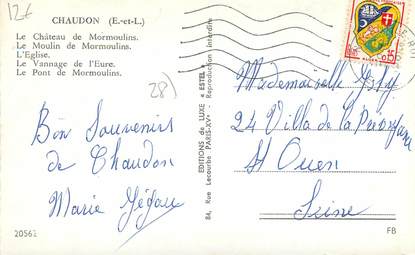 12€
CHAUDON (E.-et-L.)
Le Château de Mormoulins.
Le Moulin de Mormoulins.
L'Eglise.
Le Vannage de l'Eure.
Le Pont de Mormoulins.
28)
Bon Souvenirs
de Chaudon
Marie
20562
EDITIONS de LUXE « ESTEL »
84, Rue Lecourbe PARIS-XVe
Reproduction Interdite
Mademoiselle
24 Villa de la
St Ouen
Seine
FB